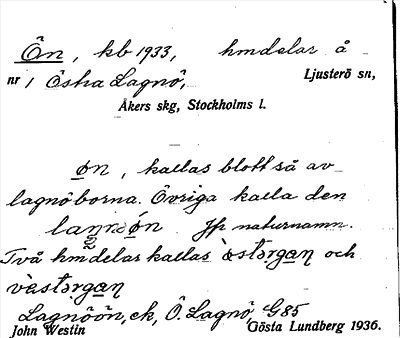 Ön, kb 1933, hmdelar å
nr 1 Östra Lagnö, Ljusterö sn,
Åkers skg, Stockholms l.
øn, kallas blott så av
lagnöborna. Övriga kalla den
Jfr naturnamn.
Två hmdelar kallas òstərgan̥ och
vàstərgan̥
Lagnöön, ek, Ö. Lagnö, G85
John Westin Gösta Lundberg 1936.